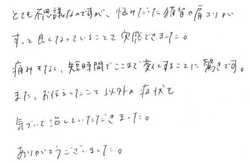 とても不思議なのですが、悩んでいた頭痛や肩コリが
すっと良くなっていることを実感できました。
痛みもなく、短時間でここまで変化することに驚きです。
また、お伝えしたこと以外の症状も
気づいて治していただきました。
ありがとうございました。